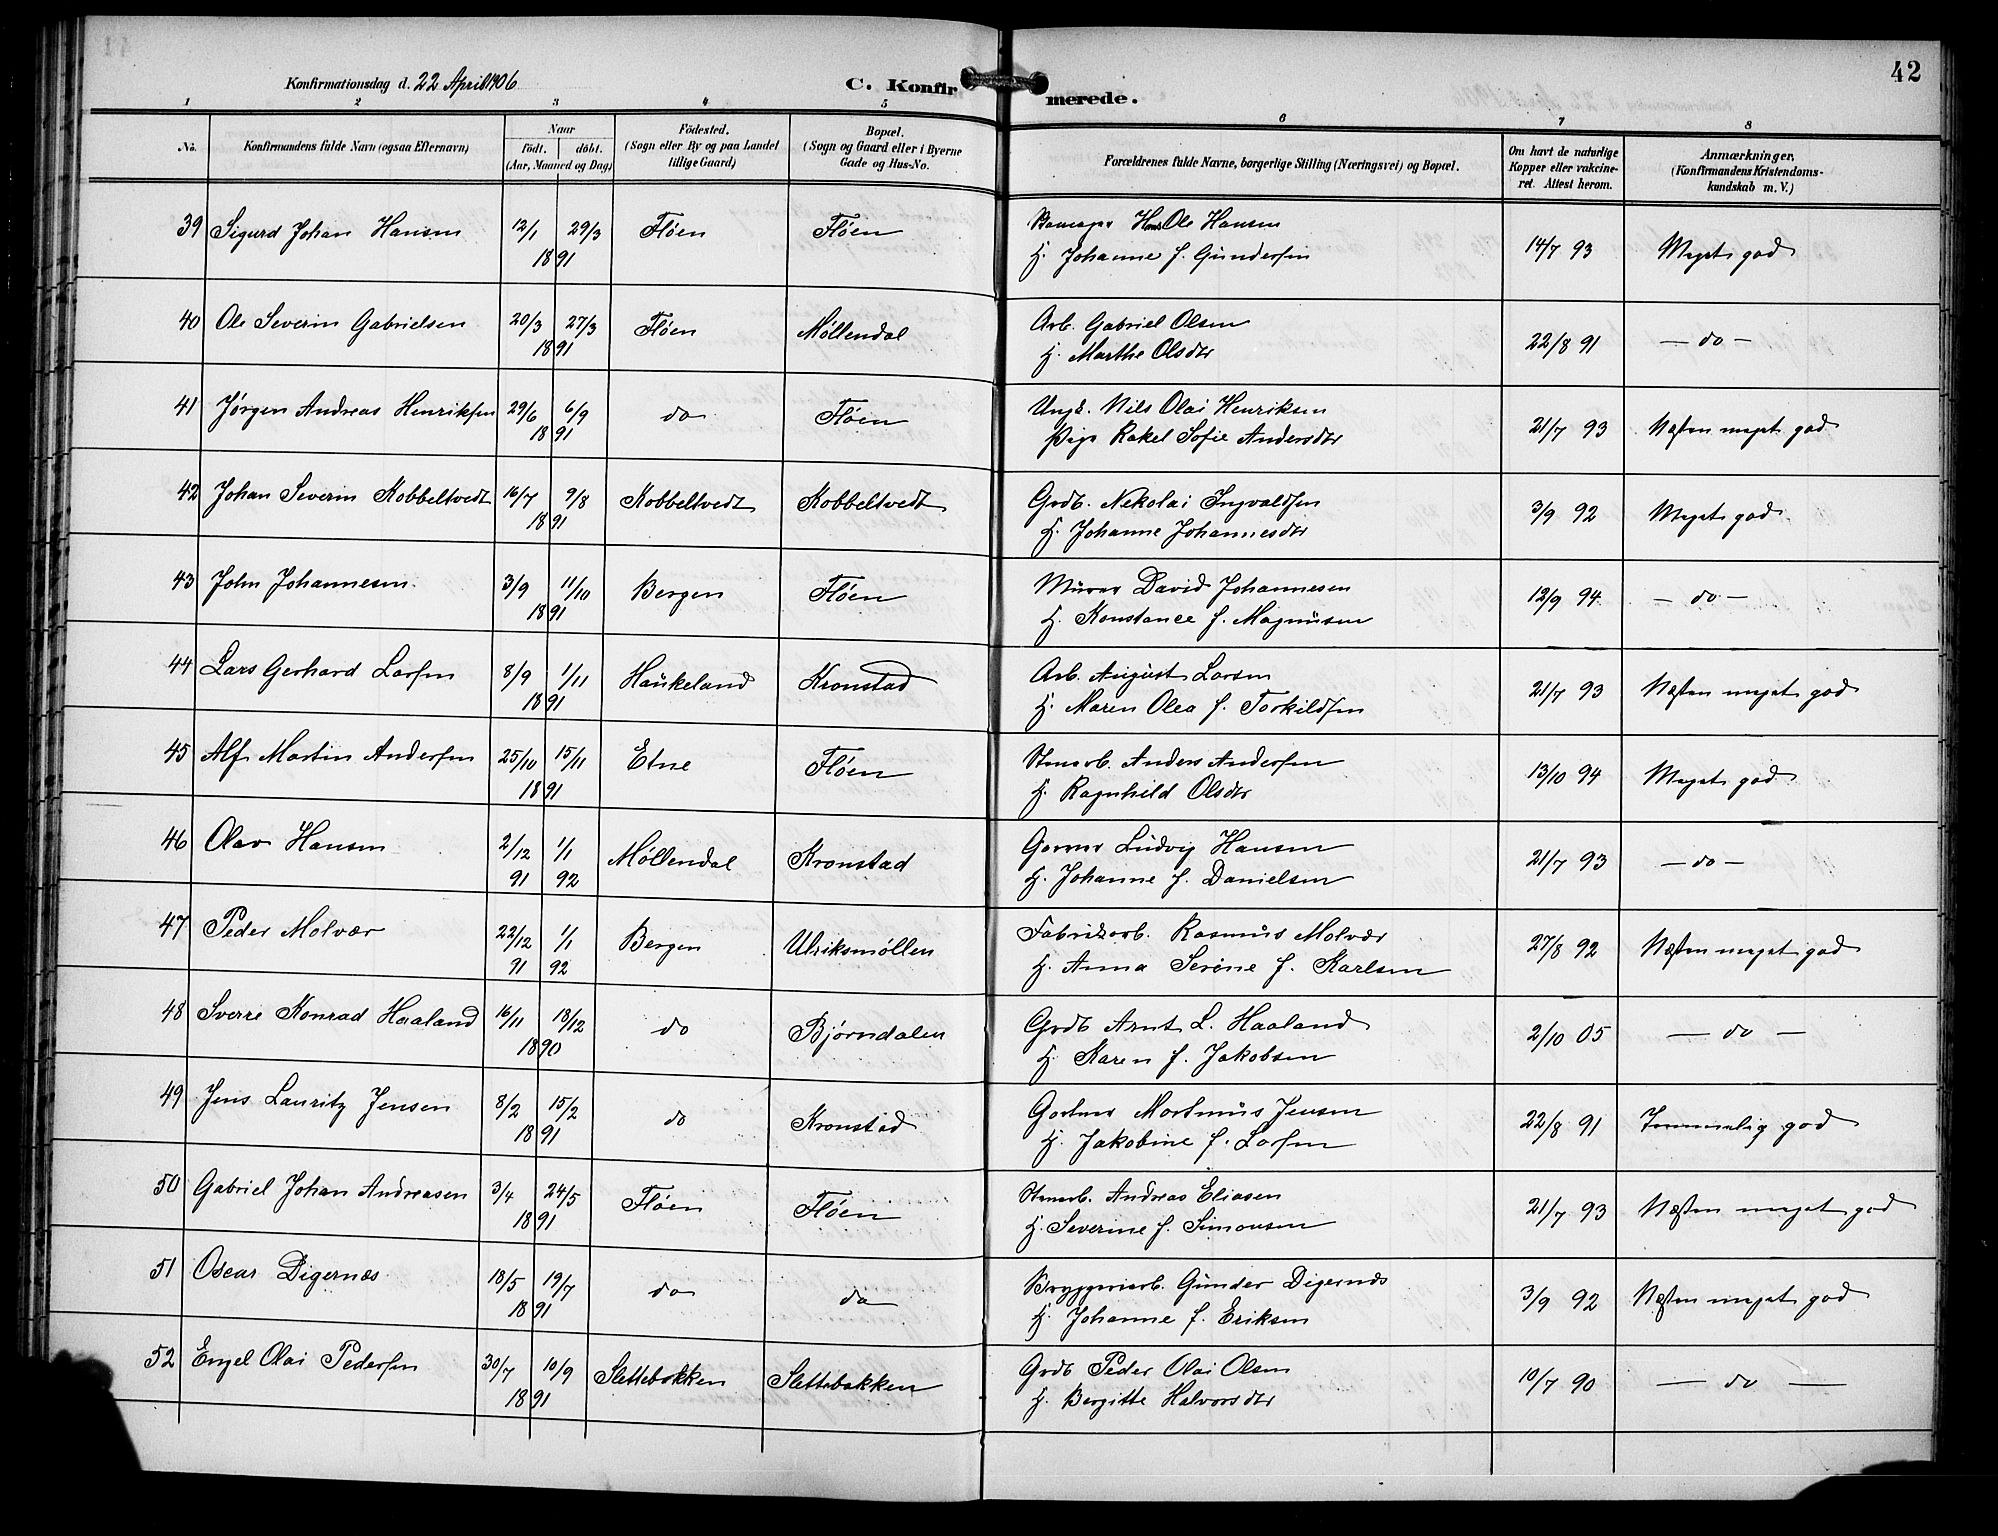 Konfirmationsdag d. 22 April 1906
C. Konfirmerede.
42
1 2 3 4 5 6 7 8
No. Konfirmandens fulde Navn (ogsaa Efternavn) Naar födt. döbt. (Aar, Maaned og Dag) Födested. (Sogn eller By og paa Landet tillige Gaard) Bopæl. (Sogn og Gaard eller i Byerne Gade og Hus-No. Forældrenes fulde Navne, borgerlige Stilling (Næringsvei) og Bopæl. Om havt de naturlige Kopper eller vakcineret. Attest herom. Anmærkninger. (Konfirmandens Kristendomskundskab m. V.)
39 Sigurd Johan Hansen 12/1 29/3 1891 Fløen Fløen Hans Ole Hansen 14/7 93 Meget god
H. Johanne f. Gundersen
40 Ole Severin Gabrielsen 20/3 27/3 1891 Fløen Møllendal Arb. Gabriel Olsen 22/8 91 — do —
H. Marthe Olsdtr
41 Jørgen Andreas Henriksen 29/6 6/9 1891 do Fløen Ungk. Nils Olai Henriksen 21/7 93 Næsten meget god
Pige Rakel Sofie Andersdtr
42 Johan Severin Kobbeltvedt 16/7 9/8 1891 Kobbeltvedt Kobbeltvedt Grdb. Nekolai Ingvaldsen 3/9 92 Meget god
H. Johanne Johannesdtr
43 John Johannesen 3/9 11/10 1891 Bergen Fløen Murer David Johannesen 12/9 94 — do —
H. Konstance f. Magnusen
44 Lars Gerhard Larsen 8/9 1/11 1891 Haukeland Kronstad Arb. August Larsen 21/7 93 Næsten meget god
H. Maren Olea f. Torkildsen
45 Alf Martin Andersen 25/10 15/11 1891 Etne Fløen Stenarb. Anders Andersen 13/10 94 Meget god
H. Ragnhild Olsdtr
46 Olav Hansen 2/12 91 1/1 92 Møllendal Kronstad Garver Ludvig Hansen 21/7 93 — do —
H. Johanne f. Danielsen
47 Peder Molvær 22/12 91 1/1 92 Bergen Ulriksmøllen Fabrikarb. Rasmus Molvær 27/8 92 Næsten meget god
H. Anna Serine f. Karlsen
48 Sverre Konrad Haaland 16/11 18/12 1890 do Bjørndalen Grdb Arnt L. Haaland 2/10 05 — do —
H. Karen f. Jakobsen
49 Jens Lauritz Jensen 8/2 15/2 1891 do Kronstad Gartner Martinus Jensen 22/8 91 Temmelig god
H. Jakobine f. Larsen
50 Gabriel Johan Andreasen 3/4 24/5 1891 Fløen Fløen Stenarb. Andreas Eliasen 21/7 93 Næsten meget god
H. Severine f. Simonsen
51 Oscar Digernæs 18/5 19/7 1891 do do Bryggeriarb. Gunder Digernæs 3/9 92 Næsten meget god
H. Johanne f. Eriksen
52 Engel Olai Pedersen 30/7 10/9 1891 Slettebakken Slettebakken Grdb Peder Olai Olsen 10/7 90 — do —
H. Bergitte Halvorsdtr